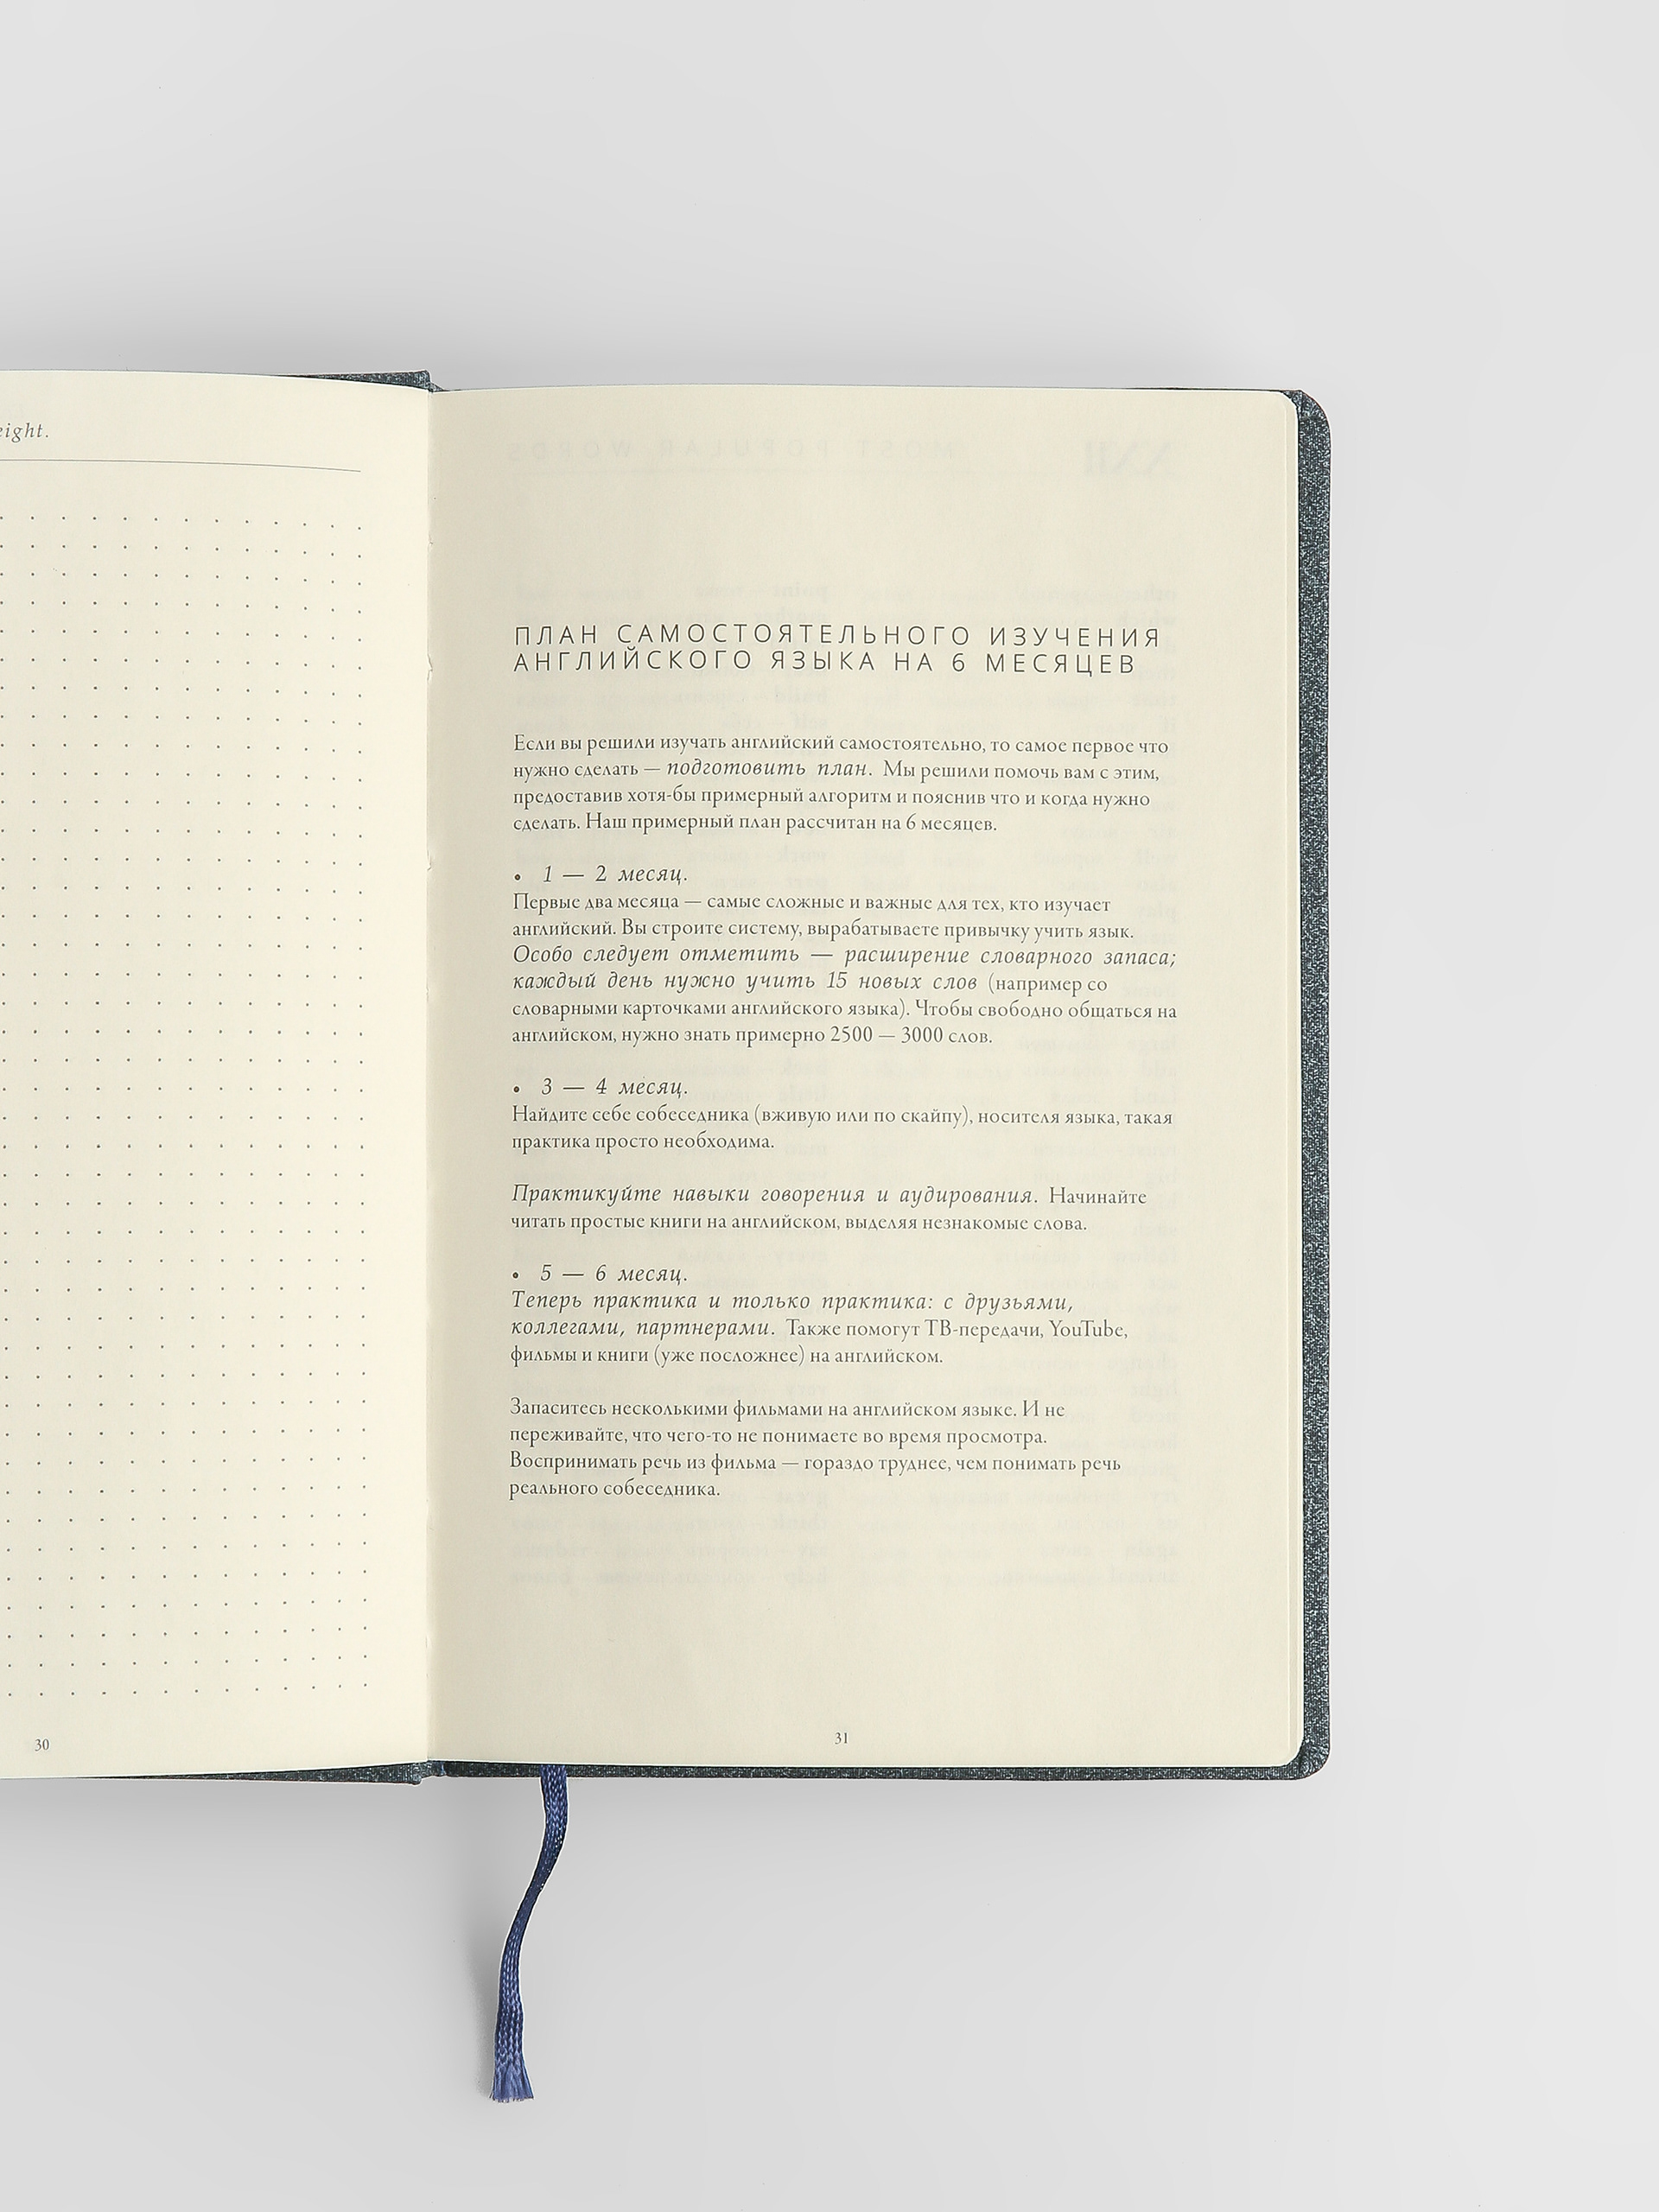 eight.
30
ПЛАН САМОСТОЯТЕЛЬНОГО ИЗУЧЕНИЯ
АНГЛИЙСКОГО ЯЗЫКА НА 6 МЕСЯЦЕВ
Если вы решили изучать английский самостоятельно, то самое первое что
нужно сделать — подготовить план. Мы решили помочь вам с этим,
предоставив хотя-бы примерный алгоритм и пояснив что и когда нужно
сделать. Наш примерный план рассчитан на 6 месяцев.
• 1 — 2 месяц.
Первые два месяца — самые сложные и важные для тех, кто изучает
английский. Вы строите систему, вырабатываете привычку учить язык.
Особо следует отметить — расширение словарного запаса;
каждый день нужно учить 15 новых слов (например со
словарными карточками английского языка). Чтобы свободно общаться на
английском, нужно знать примерно 2500 — 3000 слов.
• 3 — 4 месяц.
Найдите себе собеседника (вживую или по скайпу), носителя языка, такая
практика просто необходима.
Практикуйте навыки говорения и аудирования. Начинайте
читать простые книги на английском, выделяя незнакомые слова.
• 5 — 6 месяц.
Теперь практика и только практика: с друзьями,
коллегами, партнерами. Также помогут ТВ-передачи, YouTube,
фильмы и книги (уже посложнее) на английском.
Запаситесь несколькими фильмами на английском языке. И не
переживайте, что чего-то не понимаете во время просмотра.
Воспринимать речь из фильма — гораздо труднее, чем понимать речь
реального собеседника.
31